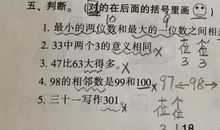 五、判断。(对的在后面的括号里画
10 9
1. 最小的两位数和最大的一位数之间相
2. 33中两个3的意义相同。x
十位 个位
3 3
3. 47比63大得多。x
4. 98的相邻数是99和100 x 97←98→
5. 三十一写作301。x
3 18